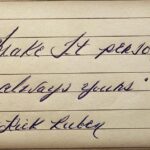 Shake It perso
always yours"
-Rick Rubey